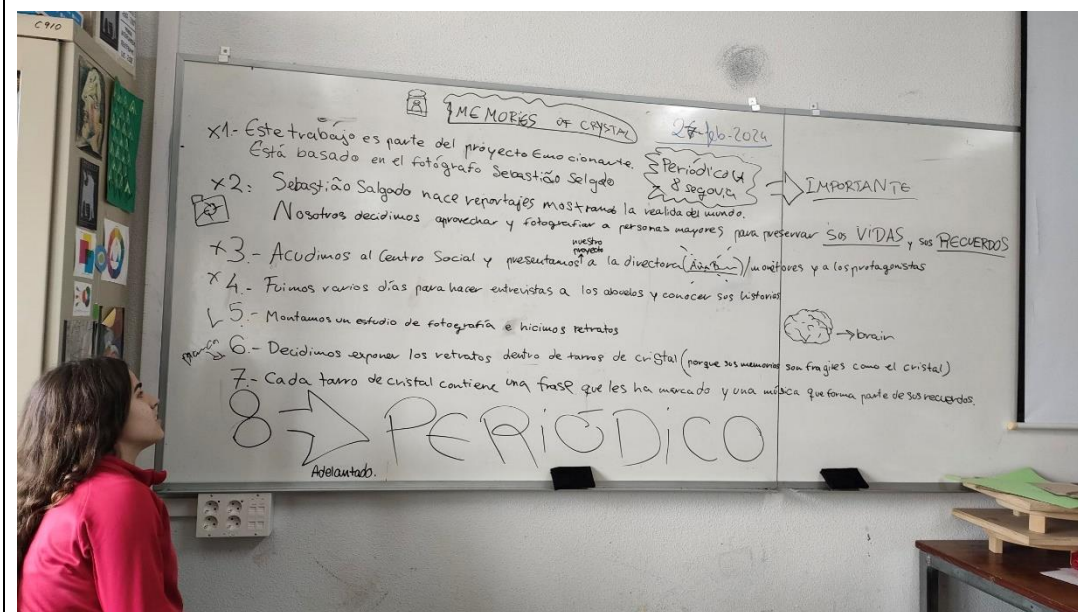 C910
MEMORIES OF CRYSTAL
27-feb-2024
X1.- Este trabajo es parte del proyecto Emocionarte.
Está basado en el fotógrafo Sebastião Selgado
Periódico
8 segovia
IMPORTANTE
X2: Sebastião Salgado hace reportajes mostrando la realida del mundo.
Nosotros decidimos aprovechar y fotografiar a personas mayores para preservar SUS VIDAS, sus RECUERDOS
nuestro
proyecto
X3.- Acudimos al Centro Social y presentamos a la directora ( )/monitores y a los protagonistas
X4.- Fuimos varios días para hacer entrevistas a los abuelos y conocer sus historias
5.- Montamos un estudio de fotografía e hicimos retratos
brain
6.- Decidimos exponer los retratos dentro de tarros de cristal (porque sus memorias son fragiles como el cristal)
7.- Cada tarro de cristal contiene una frase que les ha marcado y una música que forma parte de sus recuerdos.
8 PERIÓDICO
Adelantado.